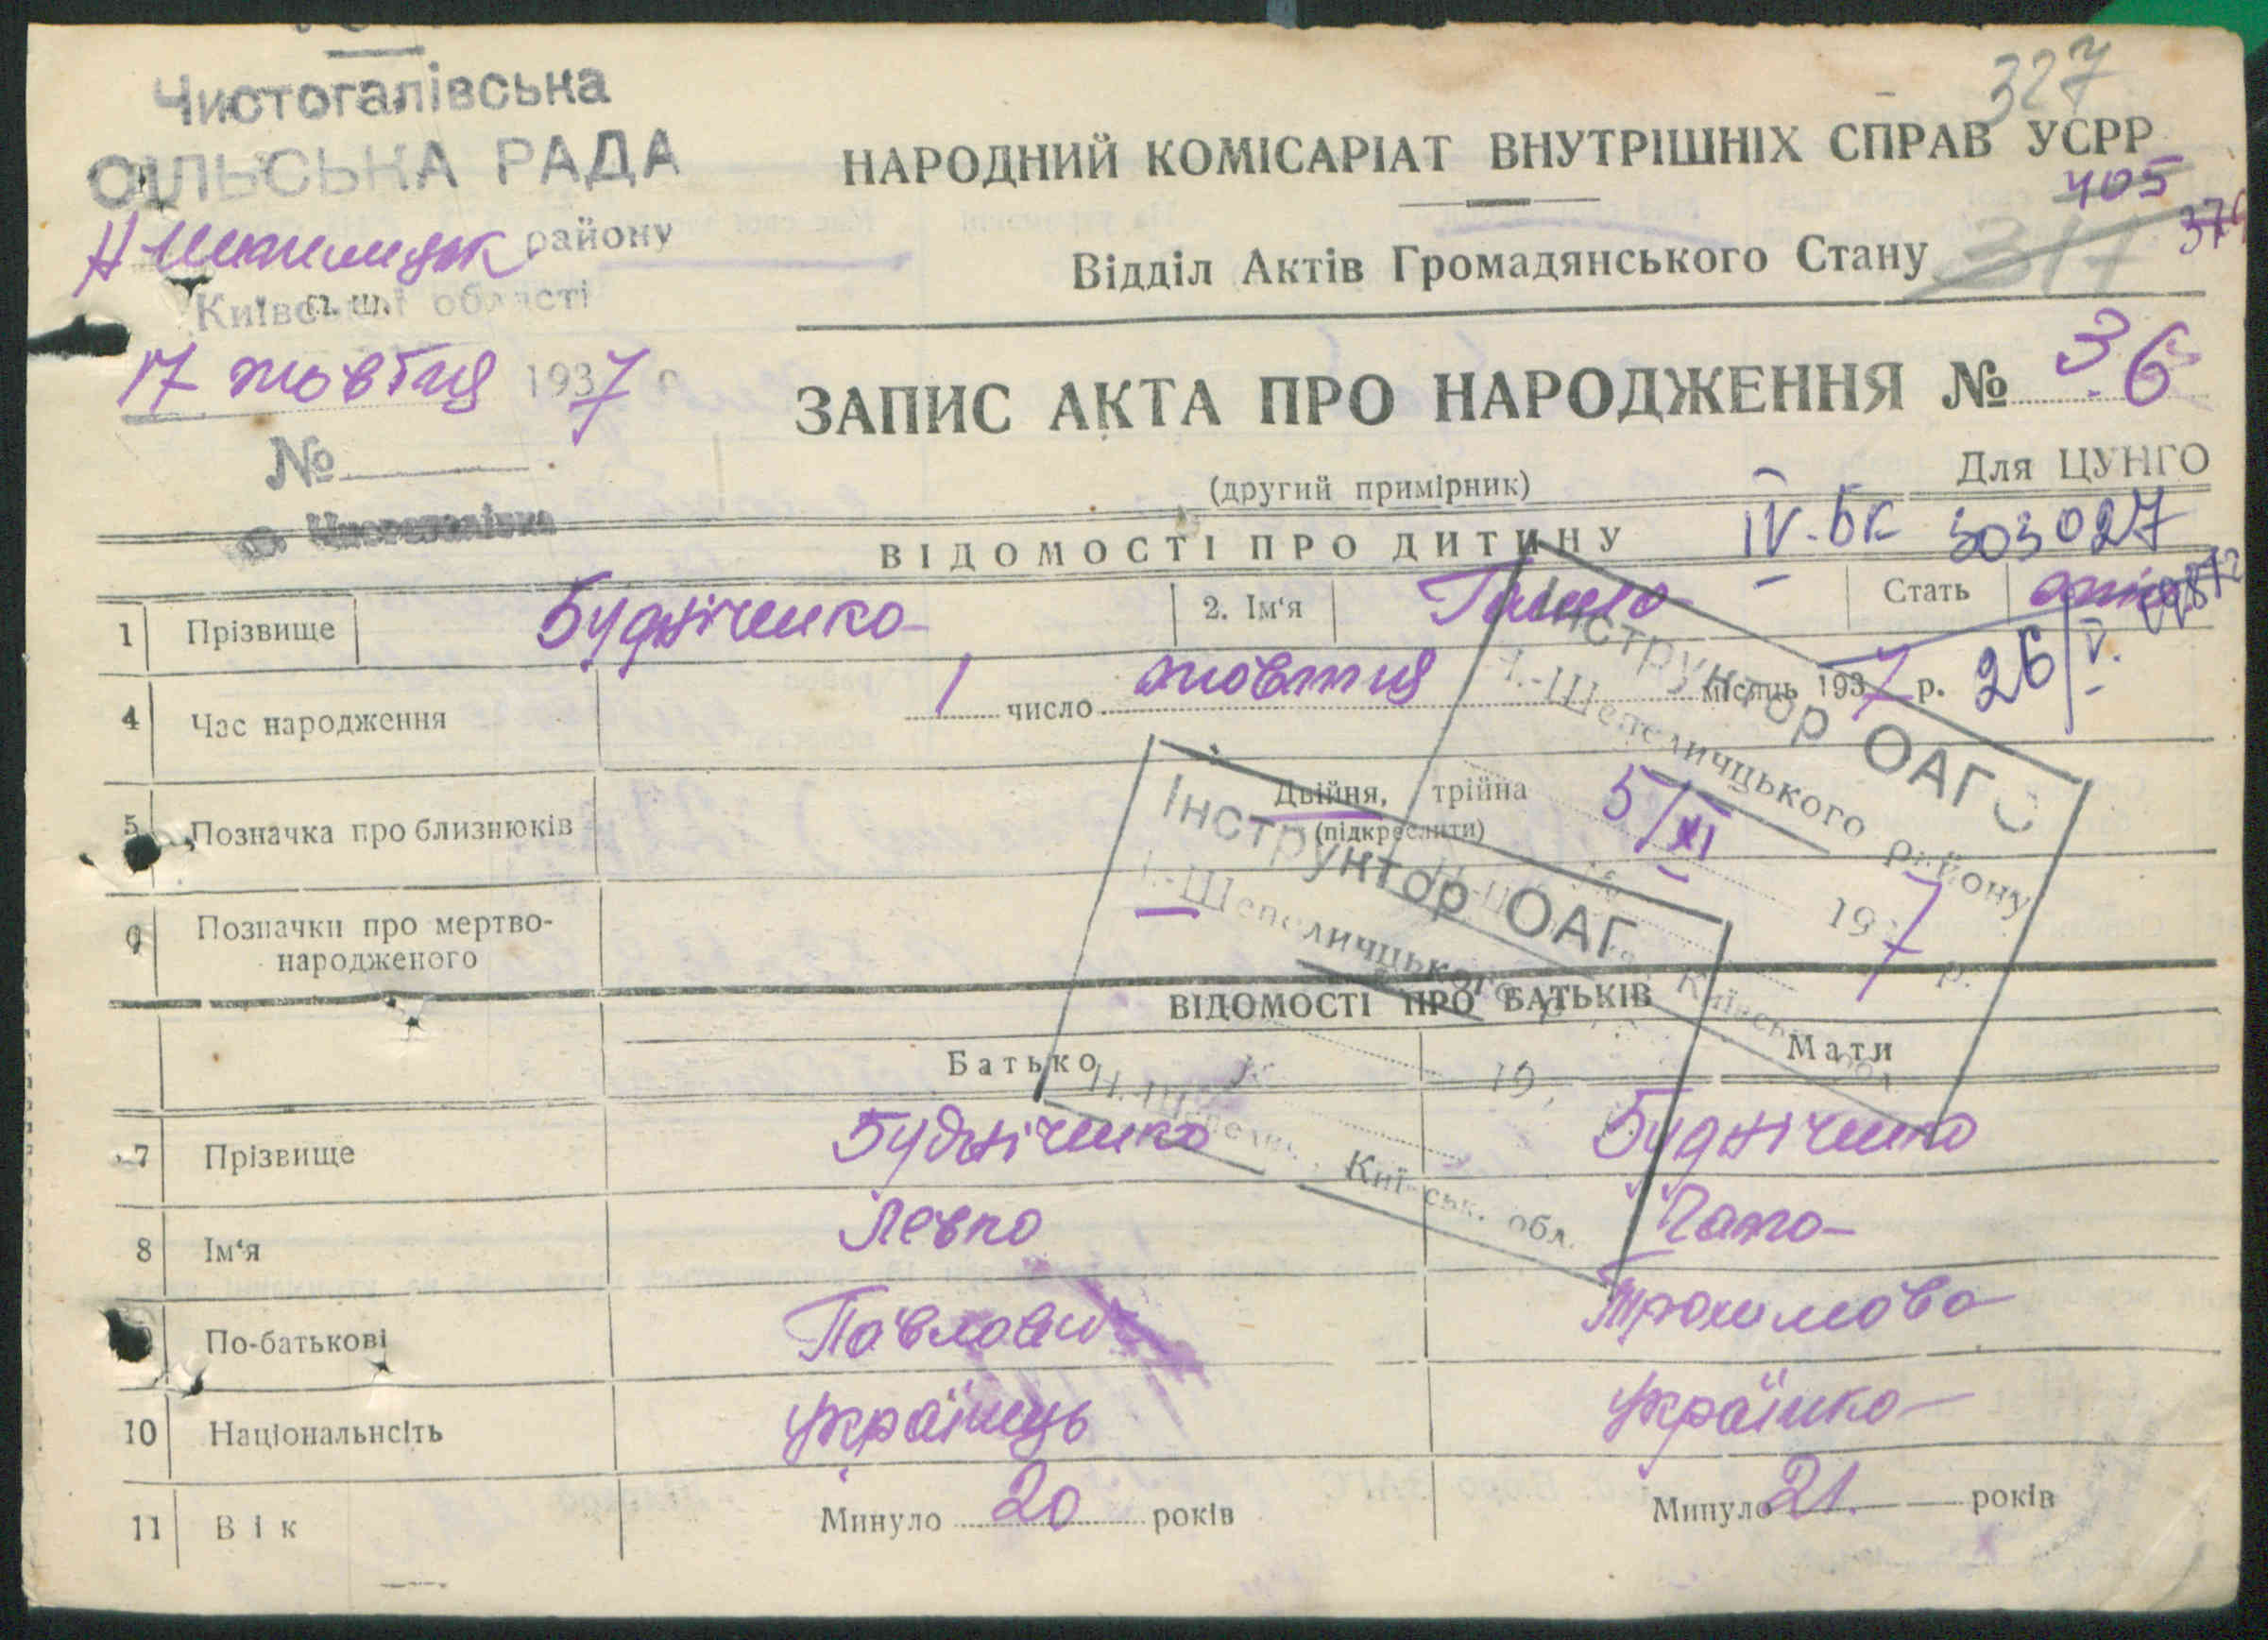 327
Чистогалівська
СІЛЬСЬКА РАДА
району
Київської області
П. Ш.
17 жовтня 1937 р
№
НАРОДНИЙ КОМІСАРІАТ ВНУТРІШНІХ СПРАВ УСРР
405
Відділ Актів Громадянського Стану
317
ЗАПИС АКТА ПРО НАРОДЖЕННЯ № 36
(другий примірник)
Для ЦУНГО
ВІДОМОСТІ ПРО ДИТИНУ
IV-БК 303027
1 Прізвище Будніченко 2. Ім'я Ганна Стать
4 Час народження 1 число жовтня місяць 1937 р. 26/V.
5 Позначка про близнюків Двійня, трійна
(підкреслити)
6 Позначки про мертво-
народженого
Інструктор ОАГС
Н.-Шепеличцького району
5/XI 1937 р.
Київськ. обл.
Інструктор ОАГС
Н.-Шепеличцького
19
Н.-Шепелич. Київськ. обл.
ВІДОМОСТІ ПРО БАТЬКІВ
Батько Мати
7 Прізвище Будніченко Будніченко
8 Ім'я Левко
По-батькові Павлович Трохимова
10 Національнсіть українець українка
11 Вік Минуло 20 років Минуло 21. років